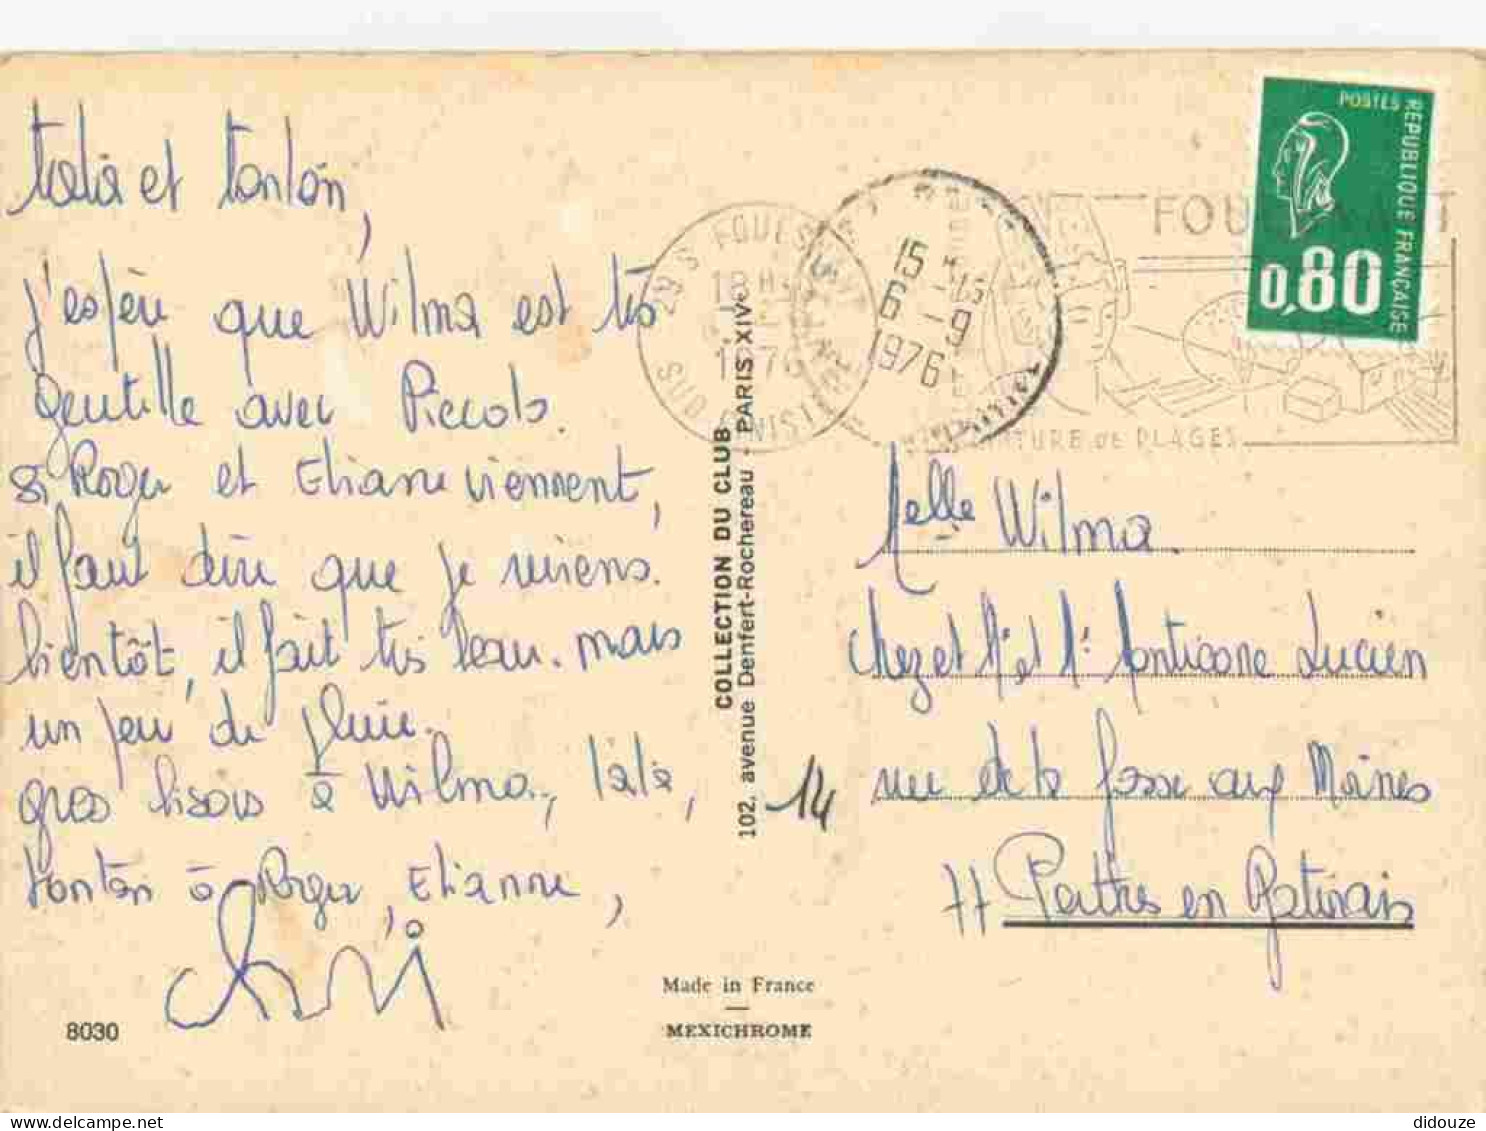 tata et tonton,
j'espère que Wilma est très
gentille avec Piccolo.
si Roger et Eliane viennent,
il faut dire que je viens.
bientôt, il fait très beau. mais
un peu de pluie.
gros bisous à Wilma, tata,
tonton à Roger, Elianne,
8030
COLLECTION DU CLUB
102, avenue Denfert-Rochereau - PARIS XIVe
Made in France
MEXICHROME
29 S FOUESNANT
1976
SUD FINISTERE
15 H
6 - 9
1976
DE PLAGES
POSTES
REPUBLIQUE FRANÇAISE
0,80
Melle Wilma.
chez et Lucien
rue de la fosse aux Moines
14
77 Perthes en Gatinais
didouze